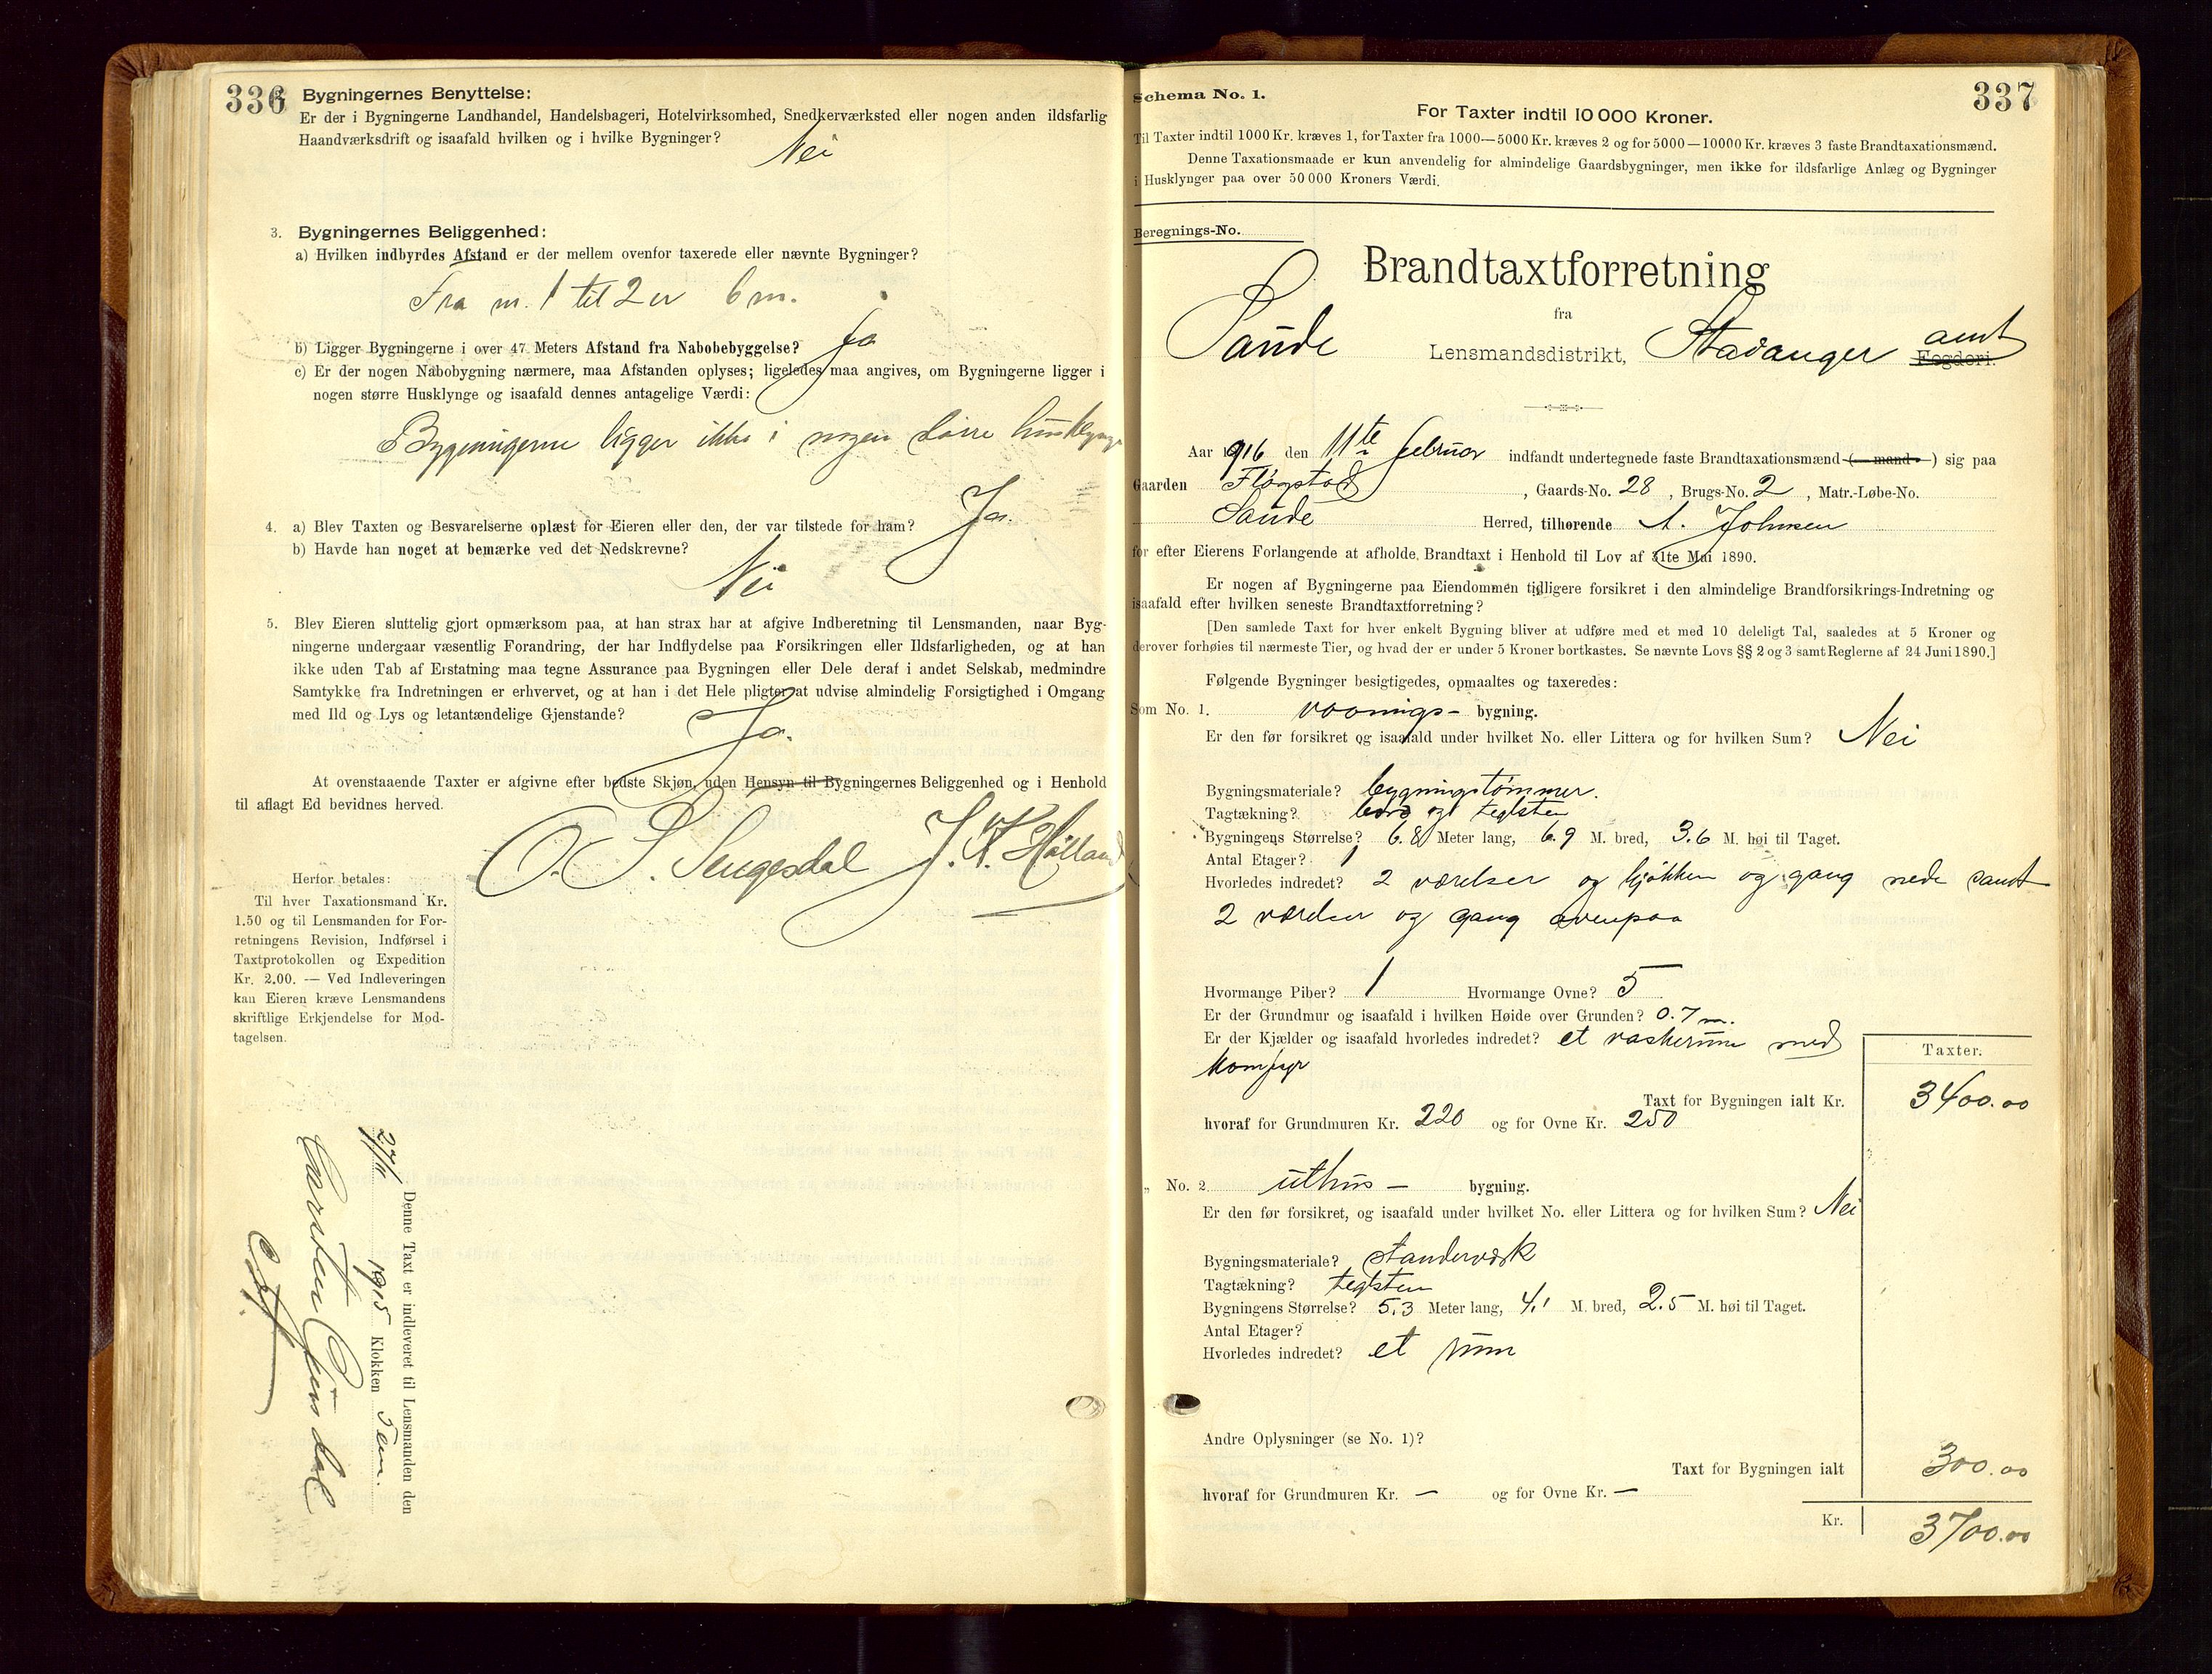 336
Bygningernes Benyttelse:
Er der i Bygningerne Landhandel, Handelsbageri, Hotelvirksomhed, Snedkerværksted eller nogen anden ildsfarlig
Haandværksdrift og isaafald hvilken og i hvilke Bygninger?
Nei
3. Bygningernes Beliggenhed:
a) Hvilken indbyrdes Afstand er der mellem ovenfor taxerede eller nævnte Bygninger?
Fra nr. 1 til 2 er 6 m.
b) Ligger Bygningerne i over 47 Meters Afstand fra Nabobebyggelse? Ja
c) Er der nogen Nabobygning nærmere, maa Afstanden oplyses; ligeledes maa angives, om Bygningerne ligger i
nogen større Husklynge og isaafald dennes antagelige Værdi:
Bygningerne ligger ikke i nogen større husklynge
4. a) Blev Taxten og Besvarelserne oplæst for Eieren eller den, der var tilstede for ham? Ja.
b) Havde han noget at bemærke ved det Nedskrevne?
Nei
5. Blev Eieren sluttelig gjort opmærksom paa, at han strax har at afgive Indberetning til Lensmanden, naar Byg-
ningerne undergaar væsentlig Forandring, der har Indflydelse paa Forsikringen eller Ildsfarligheden, og at han
ikke uden Tab af Erstatning maa tegne Assurance paa Bygningen eller Dele deraf i andet Selskab, medmindre
Samtykke fra Indretningen er erhvervet, og at han i det Hele pligter at udvise almindelig Forsigtighed i Omgang
med Ild og Lys og letantændelige Gjenstande?
Ja.
At ovenstaaende Taxter er afgivne efter bedste Skjøn, uden Hensyn til Bygningernes Beliggenhed og i Henhold
til aflagt Ed bevidnes herved.
O. S. Sengesdal J. K. Hølland
Herfor betales:
Til hver Taxationsmand Kr.
1.50 og til Lensmanden for For-
retningens Revision, Indførsel i
Taxtprotokollen og Expedition
Kr. 2.00. — Ved Indleveringen
kan Eieren kræve Lensmandens
skriftlige Erkjendelse for Mod-
tagelsen.
Denne Taxt er indleveret til Lensmanden den
27/11 1915 Klokken Fem.
Carsten
337
Schema No. 1.
For Taxter indtil 10 000 Kroner.
Til Taxter indtil 1000 Kr. kræves 1, for Taxter fra 1000—5000 Kr. kræves 2 og for 5000—10000 Kr. kræves 3 faste Brandtaxationsmænd.
Denne Taxationsmaade er kun anvendelig for almindelige Gaardsbygninger, men ikke for ildsfarlige Anlæg og Bygninger
i Husklynger paa over 50 000 Kroners Værdi.
Beregnings-No.
Brandtaxtforretning
fra
Saude Lensmandsdistrikt, Stavanger amt Fogderi.
Aar 1916 den 11te februar indfandt undertegnede faste Brandtaxationsmænd (— mand —) sig paa
Gaarden Fløgstad, Gaards-No. 28, Brugs-No. 2, Matr.-Løbe-No.
Saude Herred, tilhørende A. Johnsen
for efter Eierens Forlangende at afholde Brandtaxt i Henhold til Lov af 31te Mai 1890.
Er nogen af Bygningerne paa Eiendommen tidligere forsikret i den almindelige Brandforsikrings-Indretning og
isaafald efter hvilken seneste Brandtaxtforretning?
[Den samlede Taxt for hver enkelt Bygning bliver at udføre med et med 10 deleligt Tal, saaledes at 5 Kroner og
derover forhøies til nærmeste Tier, og hvad der er under 5 Kroner bortkastes. Se nævnte Lovs §§ 2 og 3 samt Reglerne af 24 Juni 1890.]
Følgende Bygninger besigtigedes, opmaaltes og taxeredes:
Som No. 1. vaanings- bygning.
Er den før forsikret og isaafald under hvilket No. eller Littera og for hvilken Sum? Nei
Bygningsmateriale? bygningstømmer.
Tagtækning? bord og teglsten
Bygningens Størrelse? 6.8 Meter lang, 6.9 M. bred, 3.6 M. høi til Taget.
Antal Etager? 1
Hvorledes indredet? 2 værelser og kjøkken og gang nede samt
2 værelser og gang ovenpaa
Hvormange Piber? 1 Hvormange Ovne? 5
Er der Grundmur og isaafald i hvilken Høide over Grunden? 0.7 m.
Er der Kjælder og isaafald hvorledes indredet? et vaskerum med
komfyr
Taxter.
Taxt for Bygningen ialt Kr. 3400.00
hvoraf for Grundmuren Kr. 220 og for Ovne Kr. 250
„ No. 2 uthus- bygning.
Er den før forsikret, og isaafald under hvilket No. eller Littera og for hvilken Sum? Nei
Bygningsmateriale? standerværk
Tagtækning? teglsten
Bygningens Størrelse? 5.3 Meter lang, 4.1 M. bred, 2.5 M. høi til Taget.
Antal Etager?
Hvorledes indredet? et rum
Andre Oplysninger (se No. 1)?
Taxt for Bygningen ialt 300.00
hvoraf for Grundmuren Kr. — og for Ovne Kr. —
Kr. 3700.00